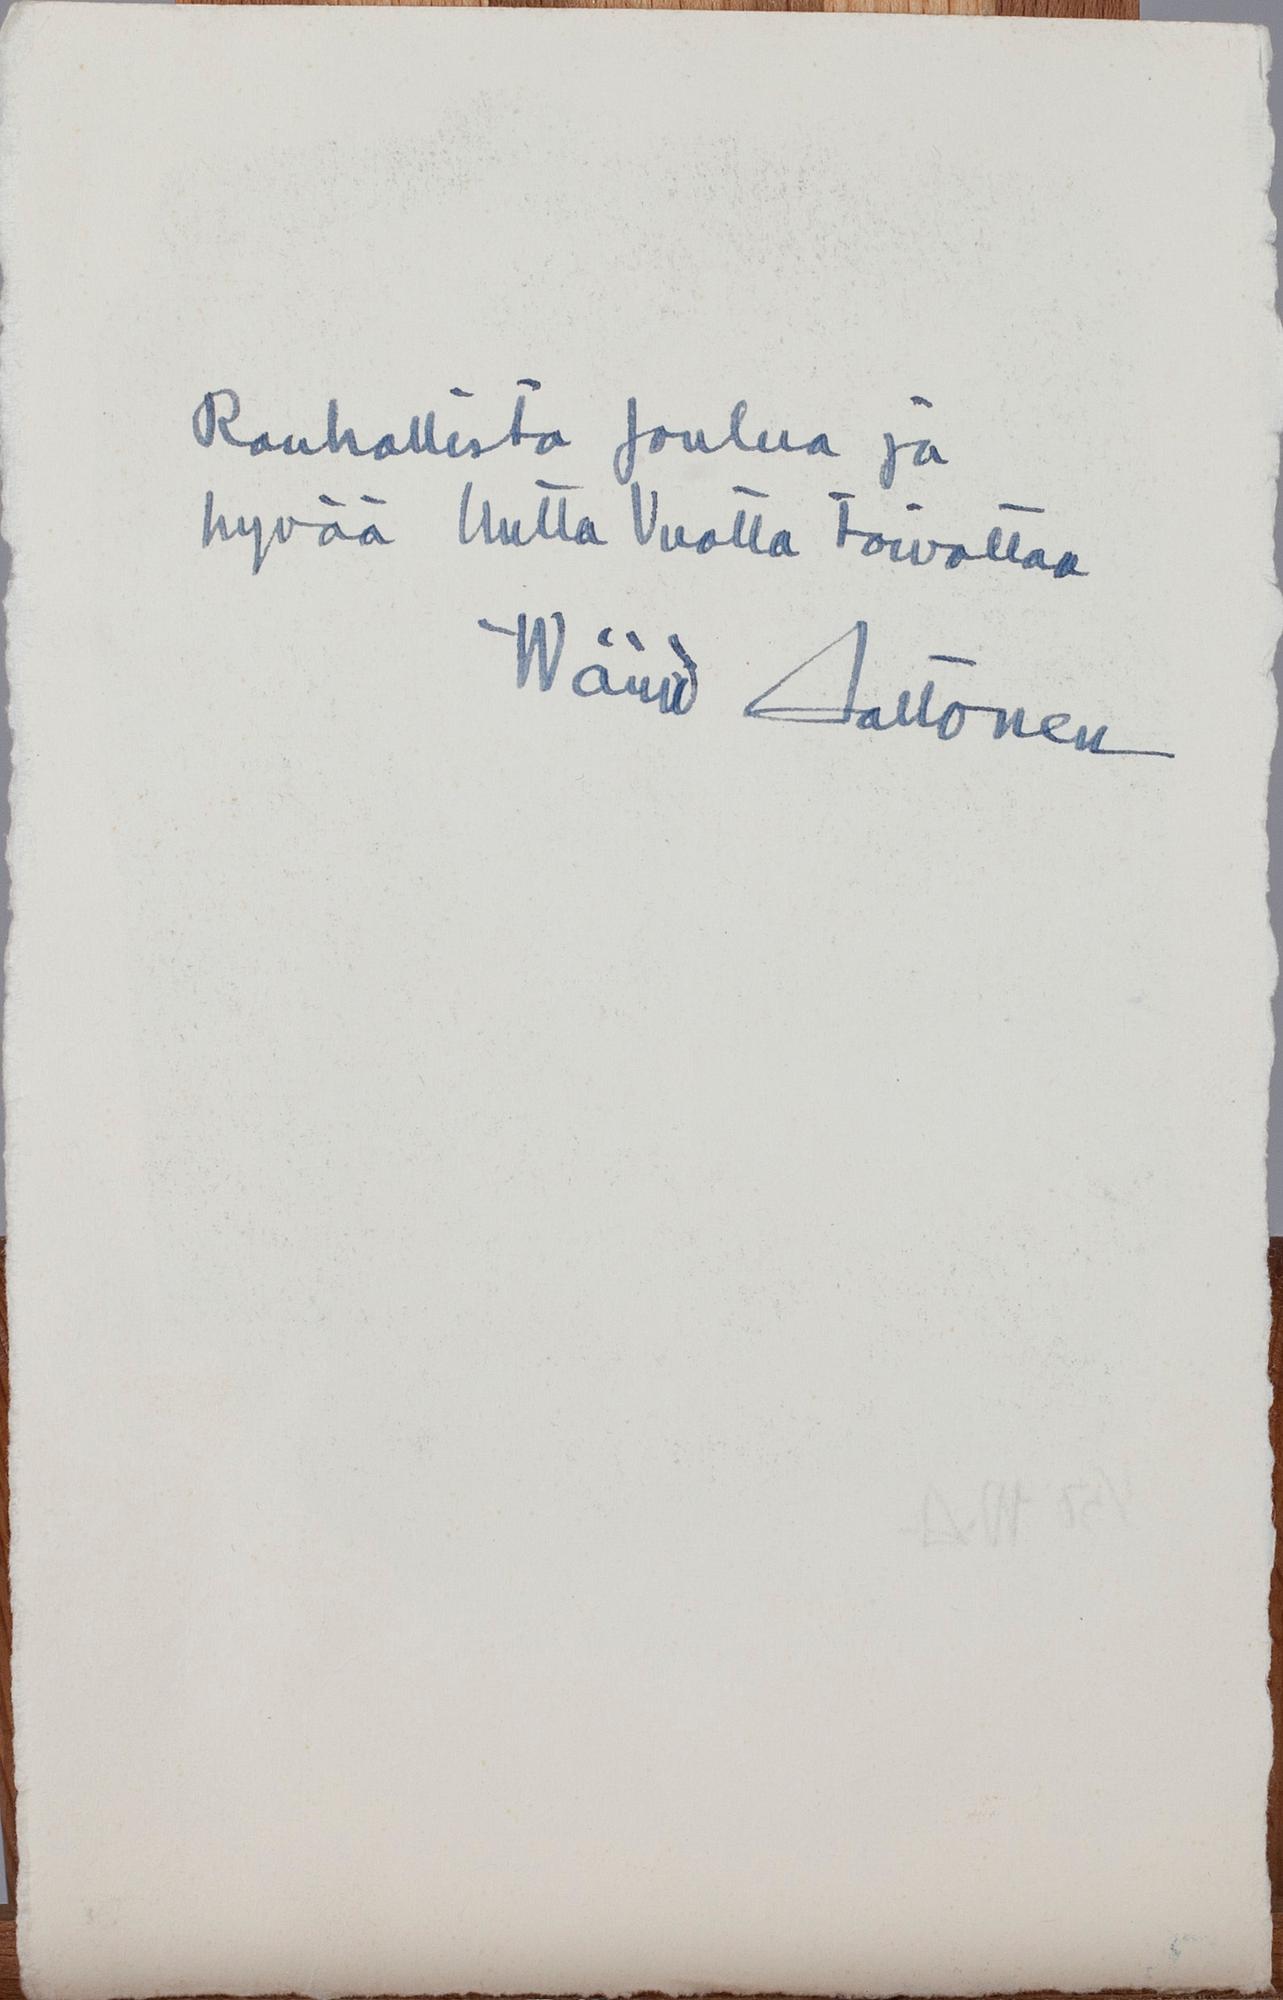 Rauhallista Joulua ja
hyvää Uutta Vuotta toivottaa
Wäinö Aaltonen